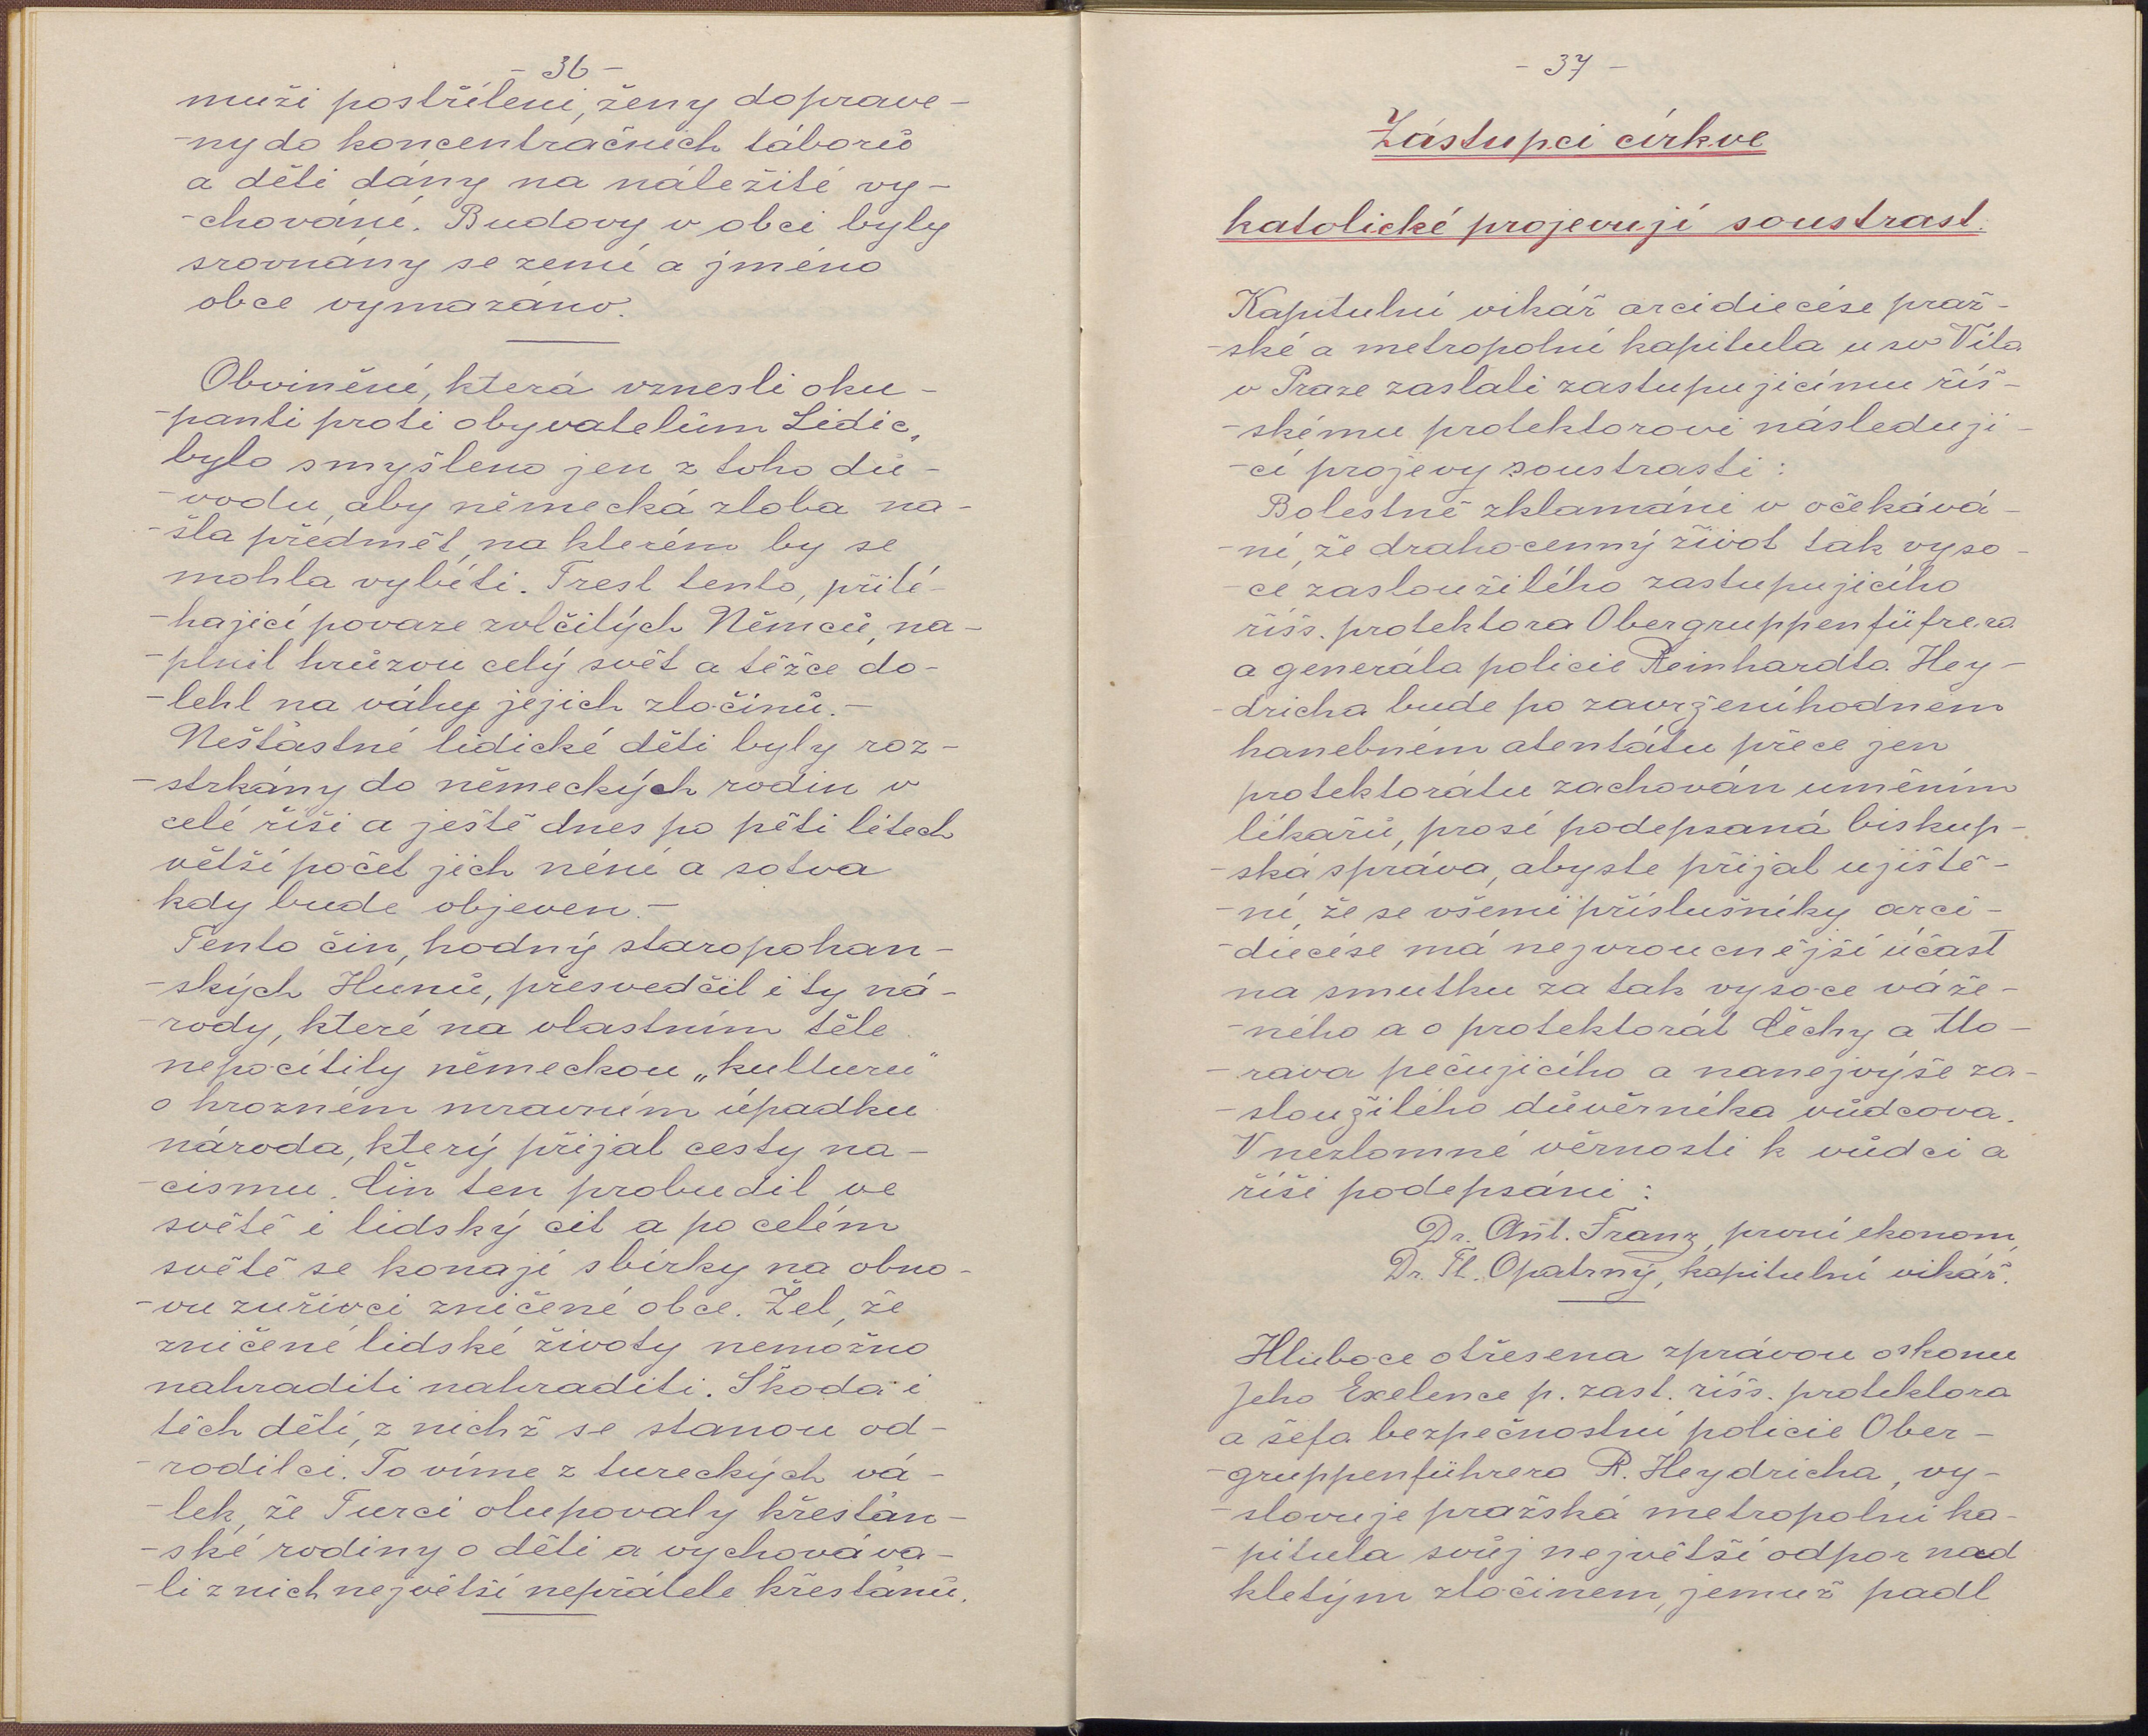 - 36 -
muži postříleni, ženy doprave-
-ny do koncentračních táborů
a děti dány na náležité vy-
-chování. Budovy v obci byly
srovnány se zemí a jméno
obce vymazáno.
Obvinění, která vznesli oku-
-panti proti obyvatelům Lidic,
bylo smyšleno jen z toho dů-
-vodu, aby německá zloba na-
-šla předmět, na kterém by se
mohla vybíti. Trest tento, přilé-
-hající povaze zvlčilých Němců, na-
-plnil hrůzou celý svět a těžce do-
-lehl na váhy jejich zločinů.-
Nešťastné lidické děti byly roz-
-strkány do německých rodin v
celé říši a ještě dnes po pěti létech
větší počet jich néní a sotva
kdy bude objeven.-
Tento čin, hodný staropohan-
-ských Hunů, přesvedčil i ty ná-
-rody, které na vlastním těle
nepocítily německou „kulturu"
o hrozném mravním úpadku
národa, který přijal cesty na-
-cismu. Čin ten probudil ve
světě i lidský cit a po celém
světě se konají sbírky na obno-
-vu zuřivci zničené obce. Žel, že
zničené lidské životy nemožno
nahraditi nahraditi. Škoda i
těch dětí, z nichž se stanou od-
-rodilci. To víme z tureckých vá-
-lek, že Turci olupovaly křesťan-
-ské rodiny o děti a vychováva-
-li z nich největší nepřátele křesťanů.
- 37 -
Zástupci církve
katolické projevují soustrast.
Kapitulní vikář arcidiecése praž-
-ské a metropolní kapitula u sv Víta
v Praze zaslali zastupujícímu říš-
-skému protektorovi následují-
-cí projevy soustrasti:
Bolestně zklamáni v očekává-
-ní, že drahocenný život tak vyso-
-ce zasloužilého zastupujícího
říšs. protektora Obergruppenfüfrera
a generála policie Reinhardta Hey-
-dricha bude po zavrženíhodném
hanebném atentátu přece jen
protektorátu zachován uměním
lékařů, prosí podepsaná biskup-
-ská správa, abyste přijal ujiště-
-ní, že se všemi příslušníky arci-
-diecése má nejvroucnější účast
na smutku za tak vysoce váže-
-ného a o protektorát Čechy a Mo-
-rava pečujícího a nanejvýše za-
-sloužilého důvěrníka vůdcova.
V nezlomné věrnosti k vůdci a
říši podepsáni:
Dr. Ant. Franz, první ekonom,
Dr. Fl. Opatrný, kapitulní vikář.
Hluboce otřesena zprávou o skonu
Jeho Exelence p. zast. říšs. protektora
a šéfa bezpečnostní policie Ober-
-gruppenführera R. Heydricha, vy-
-slovuje pražská metropolní ka-
-pitula svůj největší odpor nad
kletým zločinem, jemuž padl